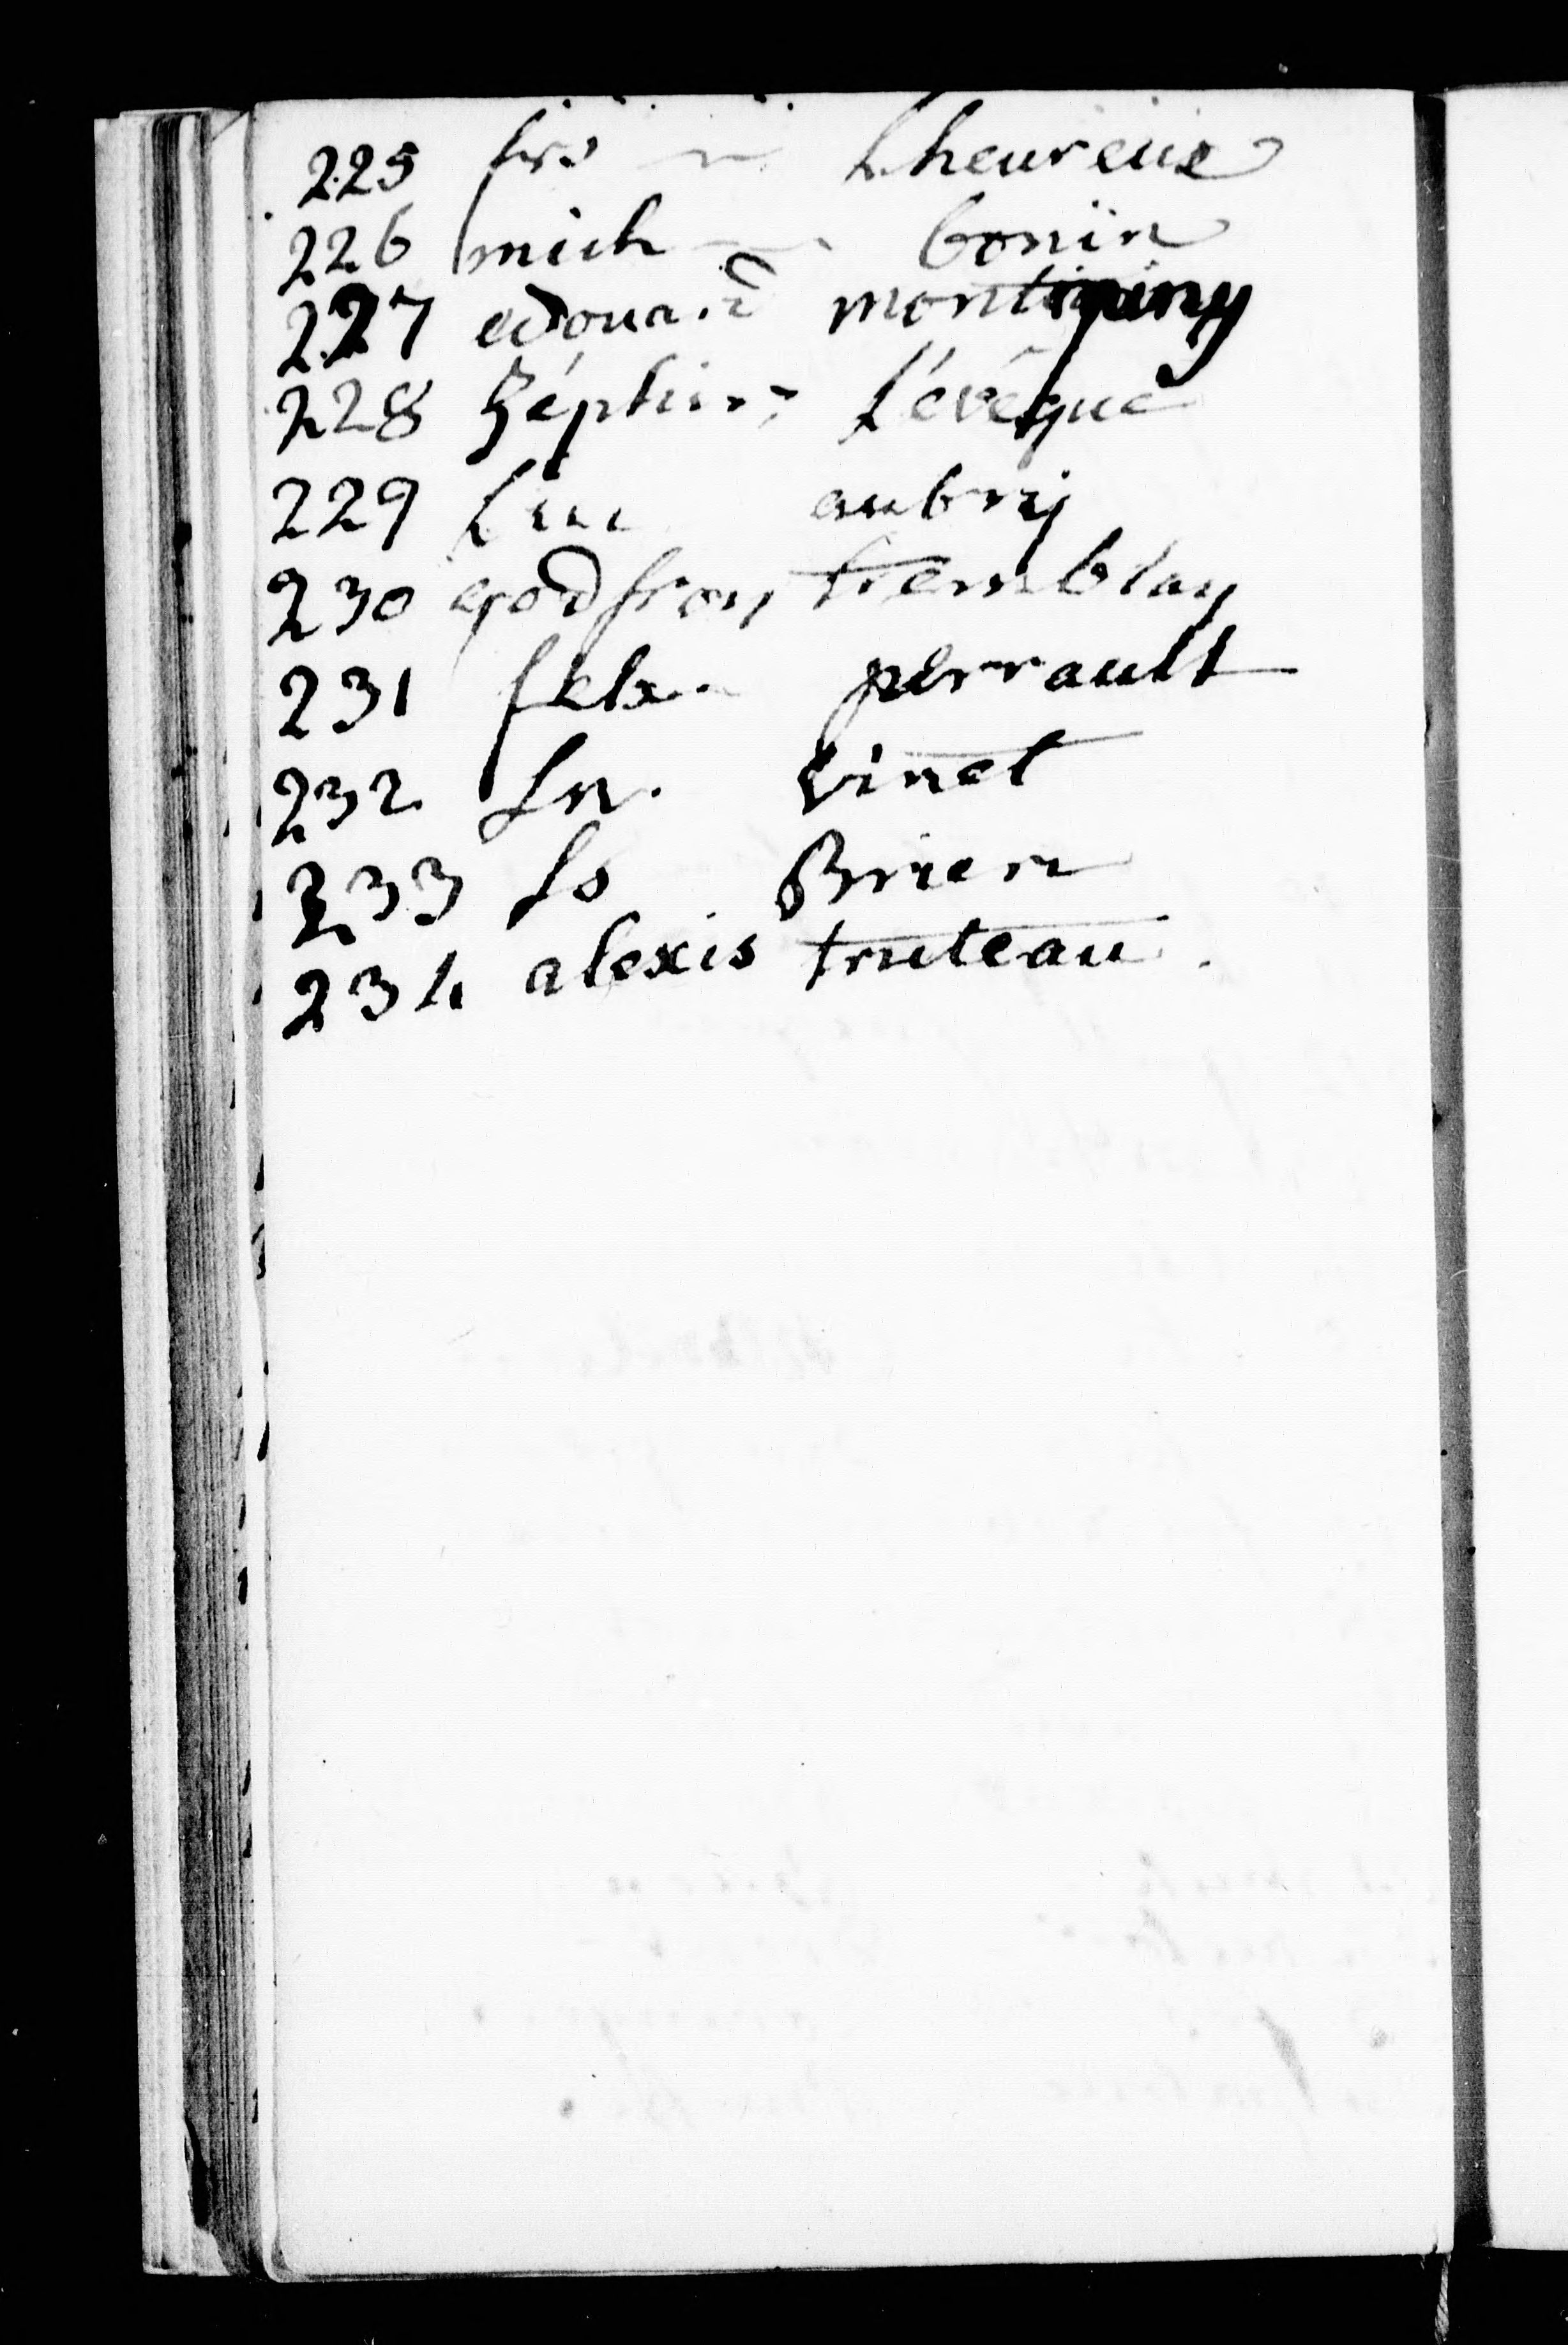 225 frs Lheureux
226 mich bonin
227 edouard montigny
228 Zéphire Lévêque
229 Luc aubry
230 godfroy tremblay
231 perrault
232 vinet
233 Ls Brien
234 alexis truteau